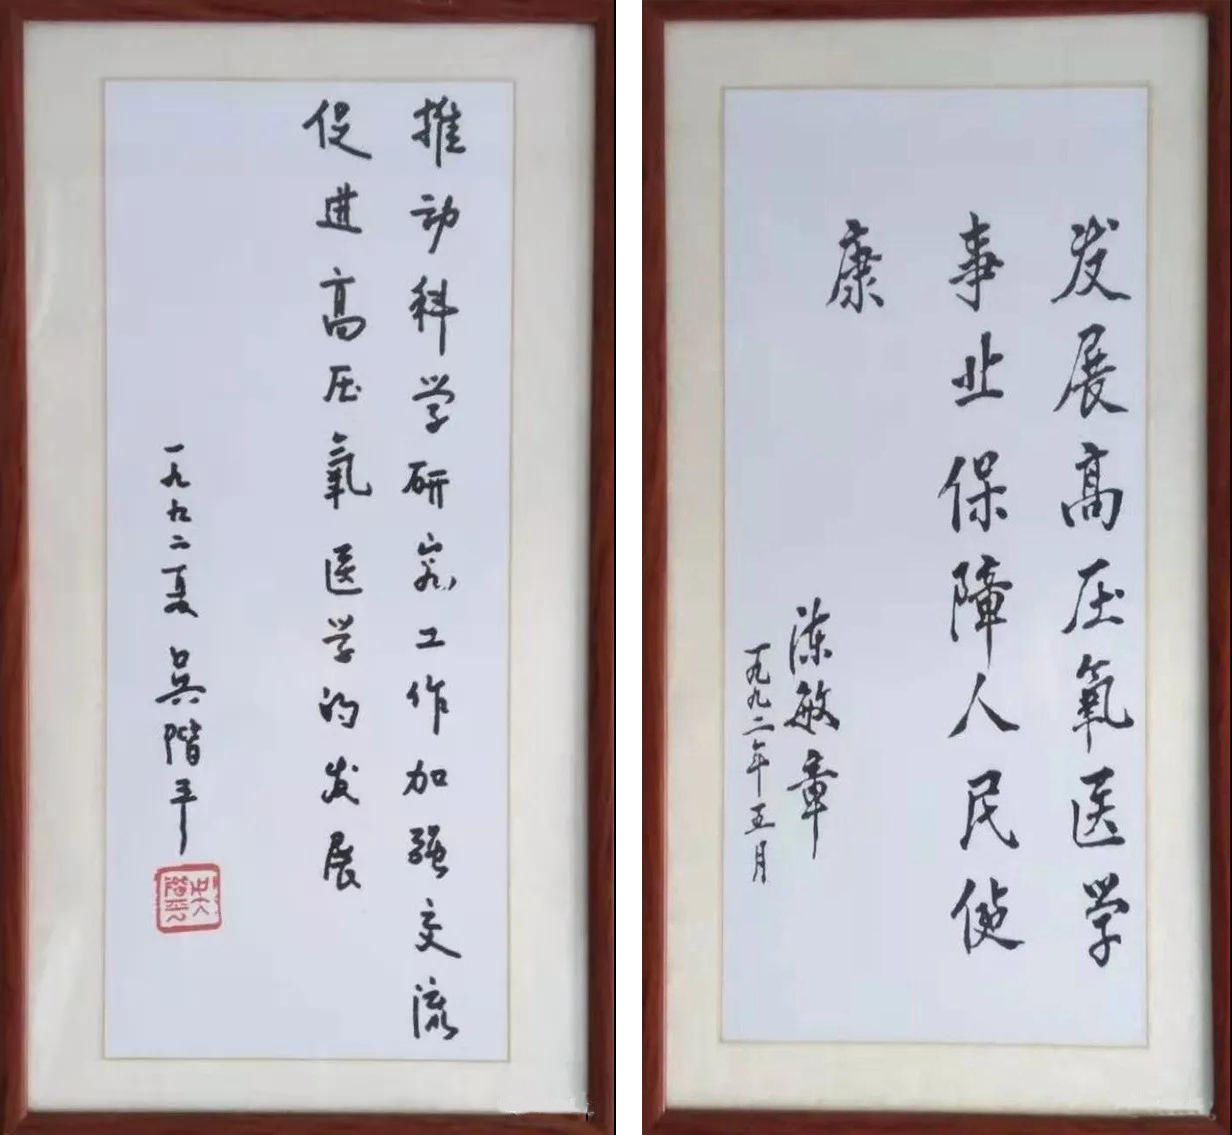 推动科学研究工作加强交流
促进高压氧医学的发展
一九九二夏 吴階平
吴階平
发展高压氧医学
事业保障人民健
康
陈敏章
一九九二年五月